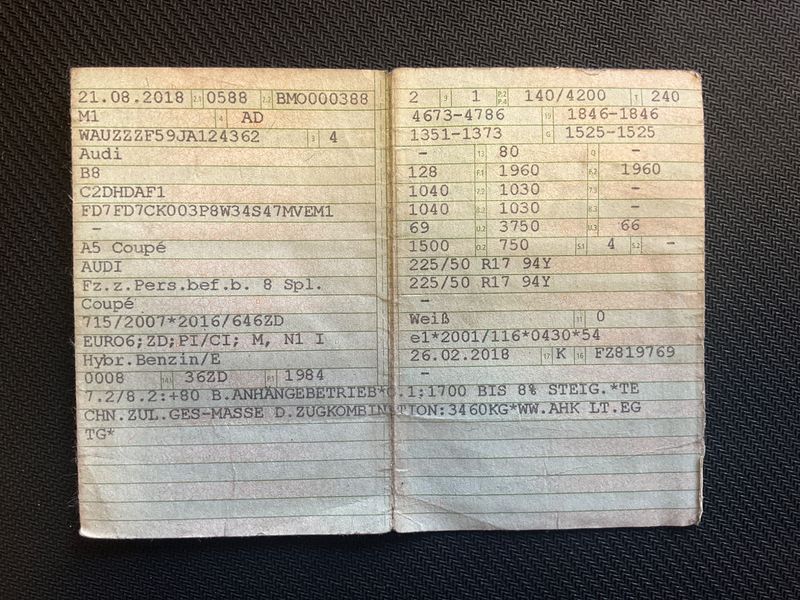 21.08.2018 2.1 0588 2.2 BMO000388
M1 4 AD
WAUZZZF59JA124362 3 4
Audi
B8
C2DHDAF1
FD7FD7CK003P8W34S47MVEM1
-
A5 Coupé
AUDI
Fz.z.Pers.bef.b. 8 Spl.
Coupé
715/2007*2016/646ZD
EURO6;ZD;PI/CI; M, N1 I
Hybr.Benzin/E
0008 14.1 36ZD P.1 1984
7.2/8.2:+80 B.ANHÄNGEBETRIEB*O.1:1700 BIS 8% STEIG.*TE
CHN.ZUL.GES-MASSE D.ZUGKOMBINATION:3460KG*WW.AHK LT.EG
TG*
2 9 1 P.2 P.4 140/4200 T 240
4673-4786 19 1846-1846
1351-1373 G 1525-1525
- 13 80 Q -
128 F.1 1960 F.2 1960
1040 7.2 1030 7.3 -
1040 8.2 1030 8.3 -
69 U.2 3750 U.3 66
1500 O.2 750 S.1 4 S.2 -
225/50 R17 94Y
225/50 R17 94Y
-
Weiß 11 0
e1*2001/116*0430*54
26.02.2018 17 K 16 FZ819769
-